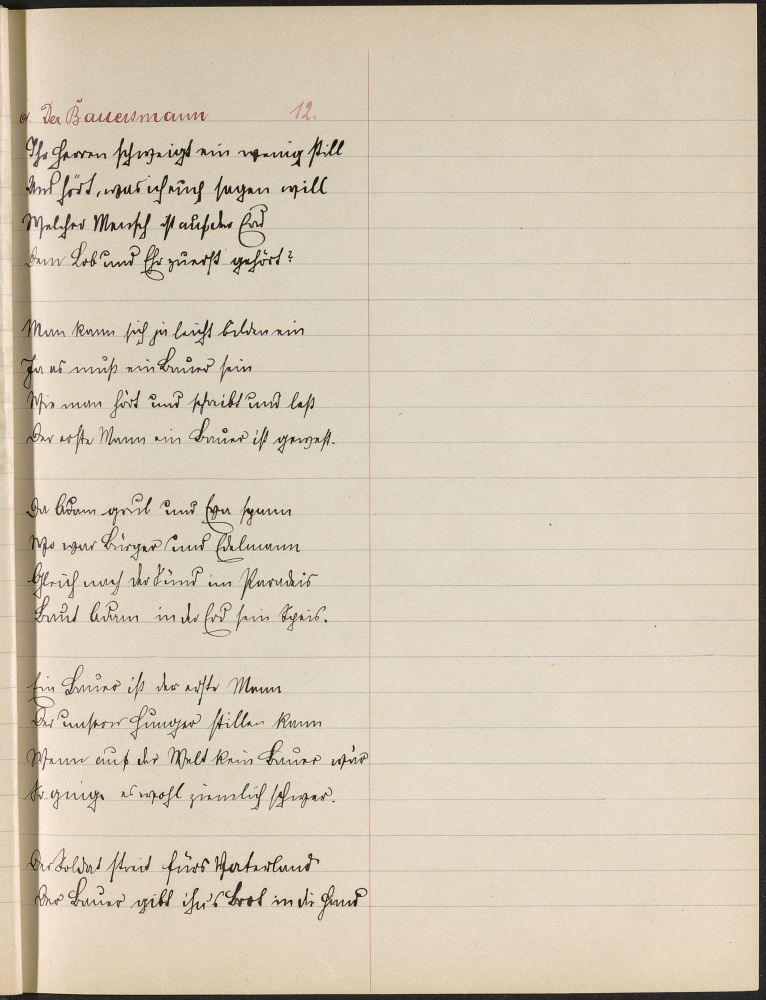 Der Bauersmann 12.
Ihr Herren schweigt ein wenig still
Und hört, was ich euch sagen will
Welcher Mensch ist auf der Erd
Dem Lob und Ehr zuerst gehört?
Man kann sich ja leicht bilden ein
Ja es muß ein Bauer sein
Wie man hört und schreibt und lest
Der erste Mann ein Bauer ist gewest.
Da Adam grub und Eva spann
Wo war Bürger und Edelmann
Gleich nach der Sünd im Paradeis
Baut Adam in der Erd sein Speis.
Ein Bauer ist der erste Mann
Der unsern Hunger stillen kann
Wenn auf der Welt kein Bauer wär
So ginge es wohl ziemlich schwer.
Der Soldat streit fürs Vaterland
Der Bauer gibt ihm's Brot in die Hand